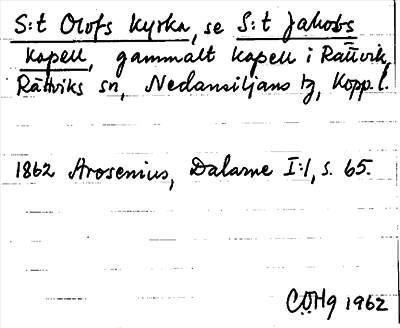 S:t Olofs kyrka, se S:t Jakobs
kapell, gammalt kapell i Rättvik,
Rättviks sn, Nedansiljans tg, Kopp. l.
1862 Arosenius, Dalarne I:1, s. 65.
COHg 1962